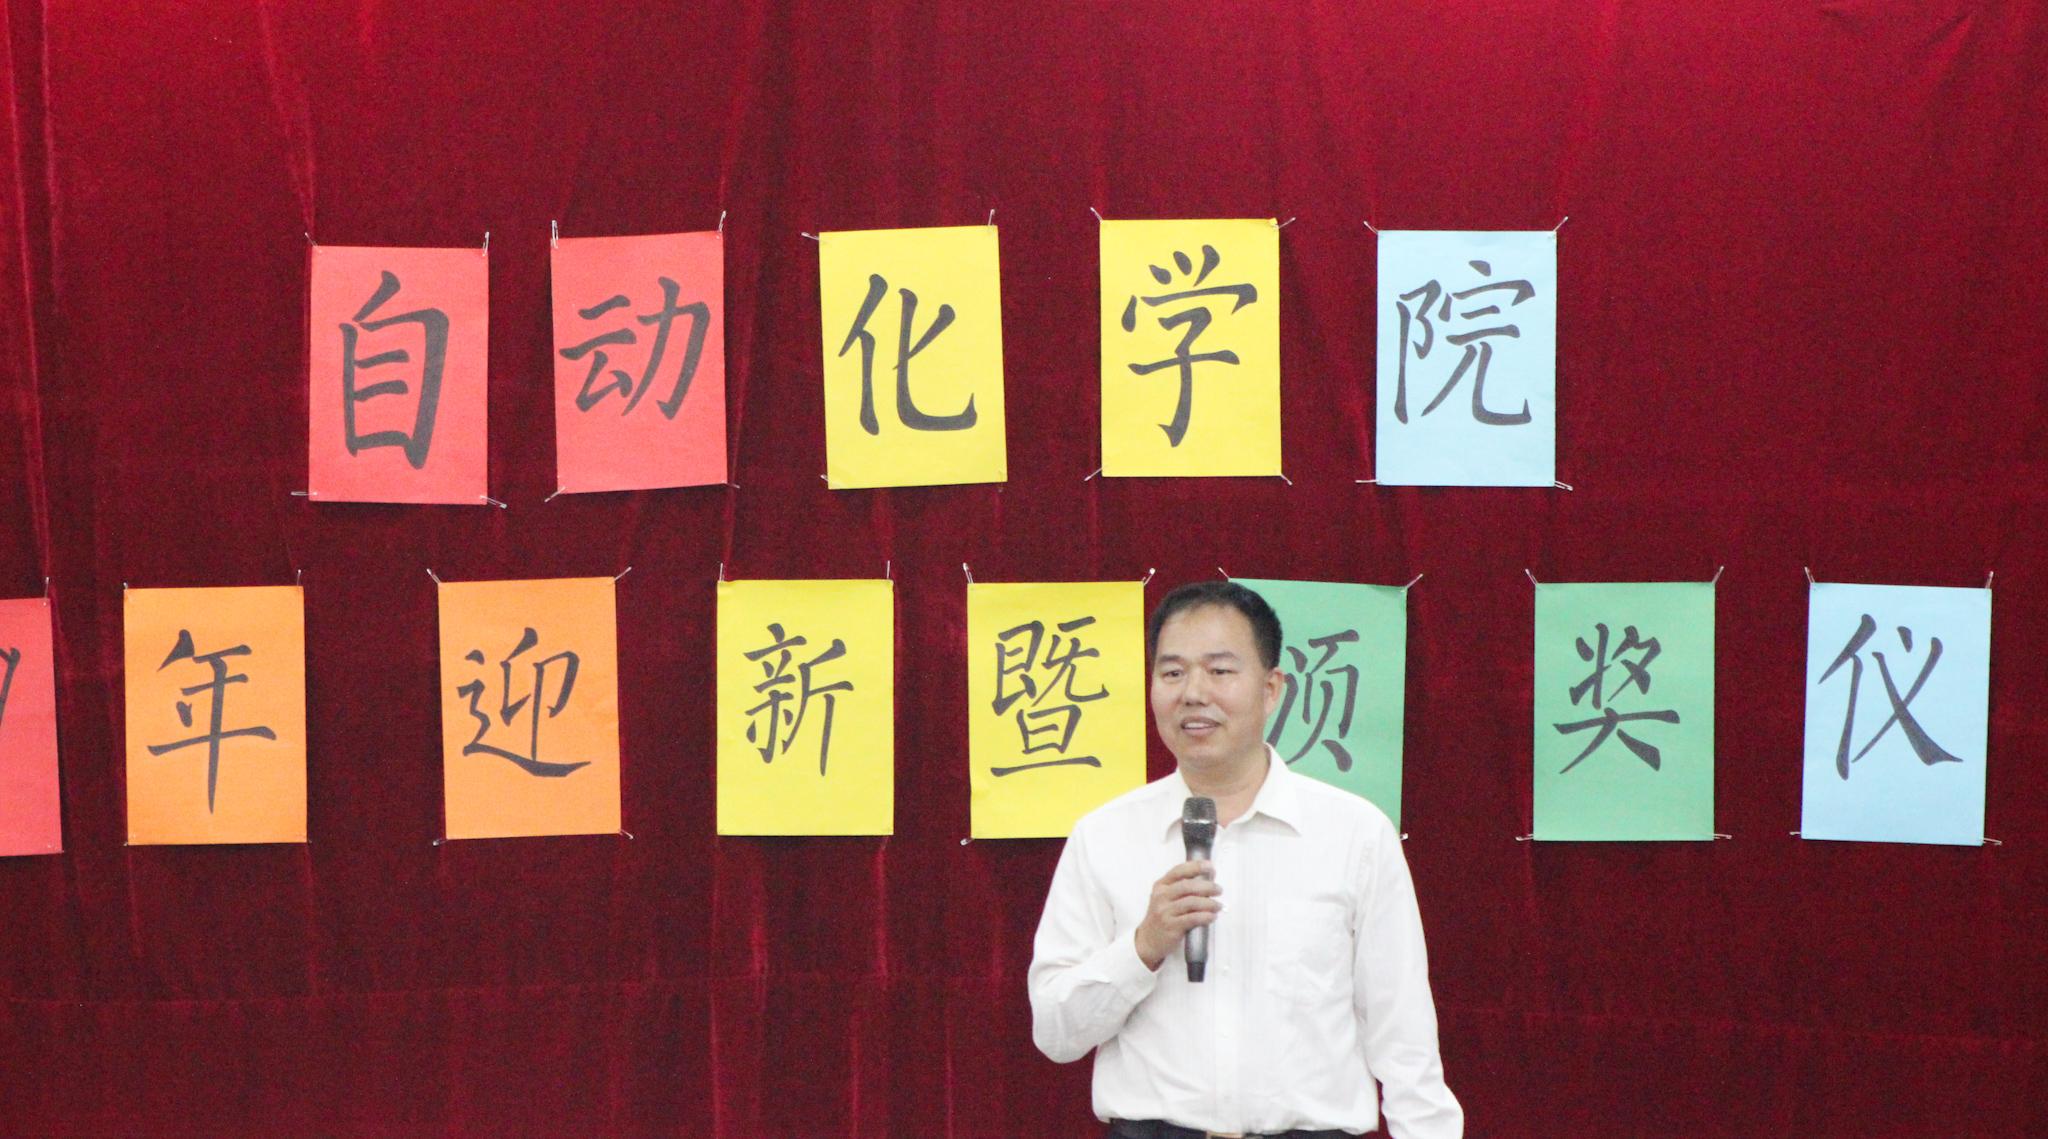 自动化学院
年迎新暨颁奖仪